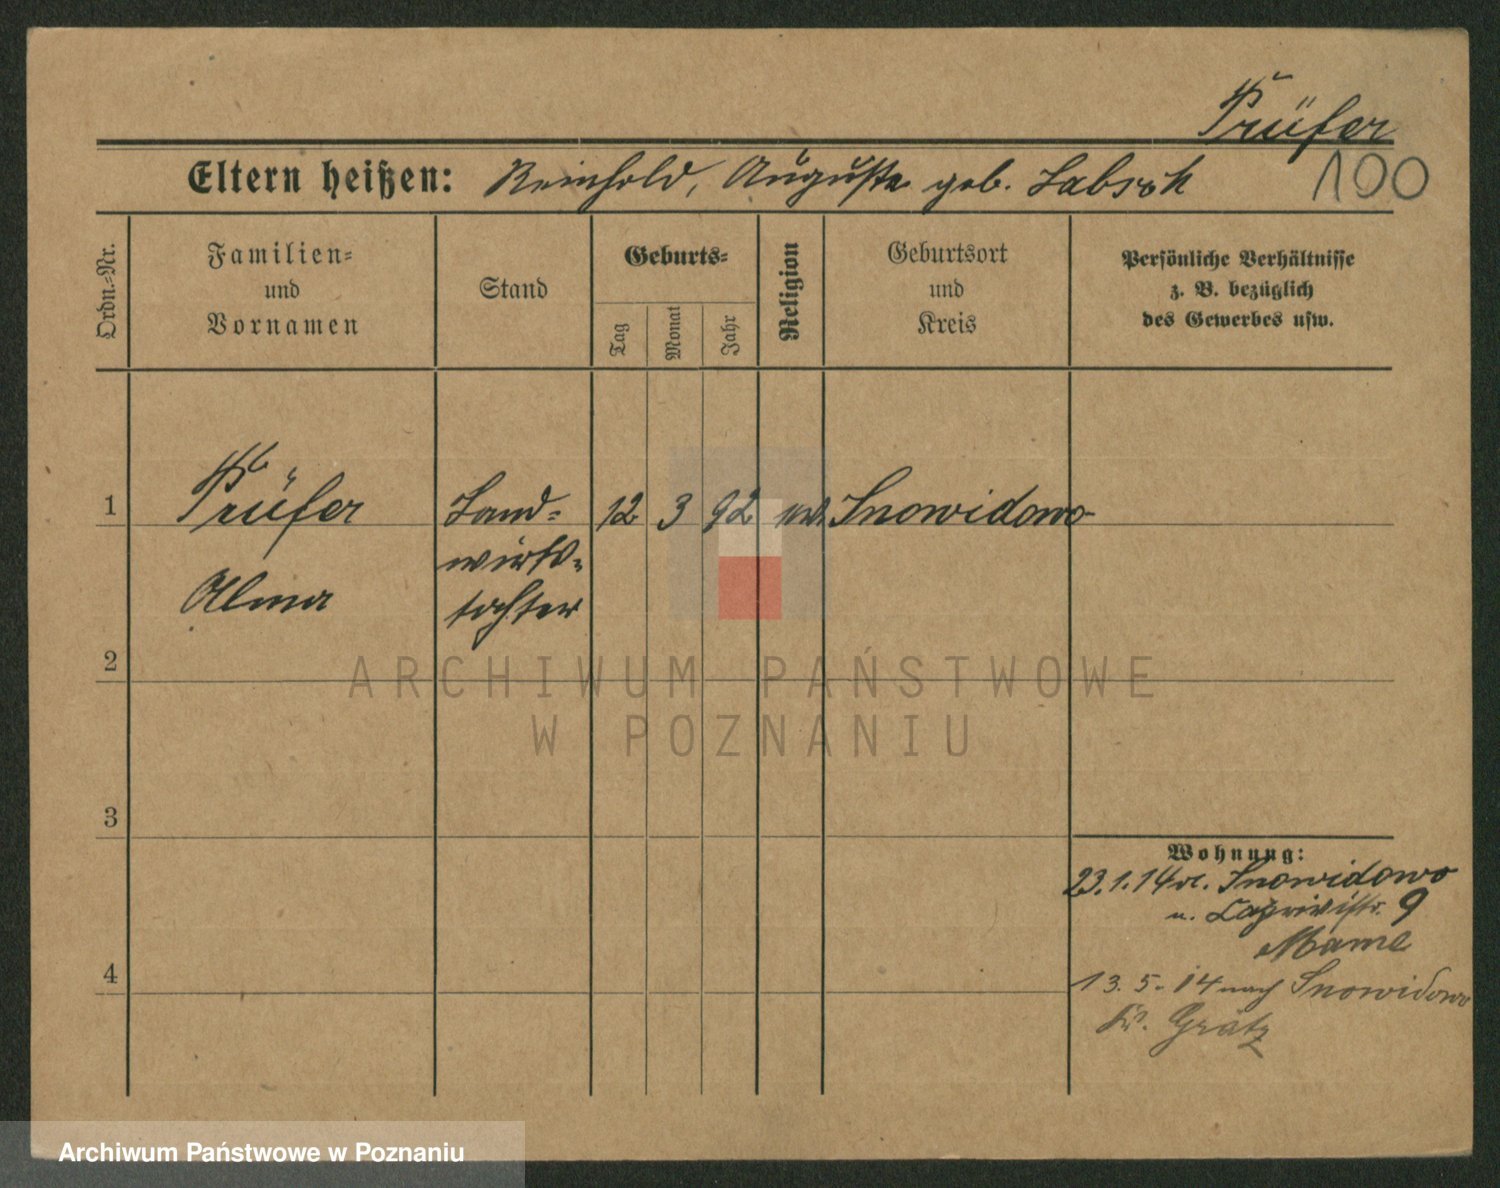 Prüfer
Eltern heißen: Reinhold, Auguste geb. Labsch
100
Ordn.-Nr.
Familien-
und
Vornamen
Stand
Geburts-
Tag
Monat
Jahr
Religion
Geburtsort
und
Kreis
Persönliche Verhältnisse
z. B. bezüglich
des Gewerbes usw.
1 Prüfer Land- 12 3 92 ev. Snowidowo
wirts-
Alma tochter
2
ARCHIWUM PAŃSTWOWE
W POZNANIU
3
Wohnung:
23.1.14 v. Snowidowo
n. Caprivistr. 9
4
13. 5. 14 nach Snowidowo
Kr. Grätz
Archiwum Państwowe w Poznaniu